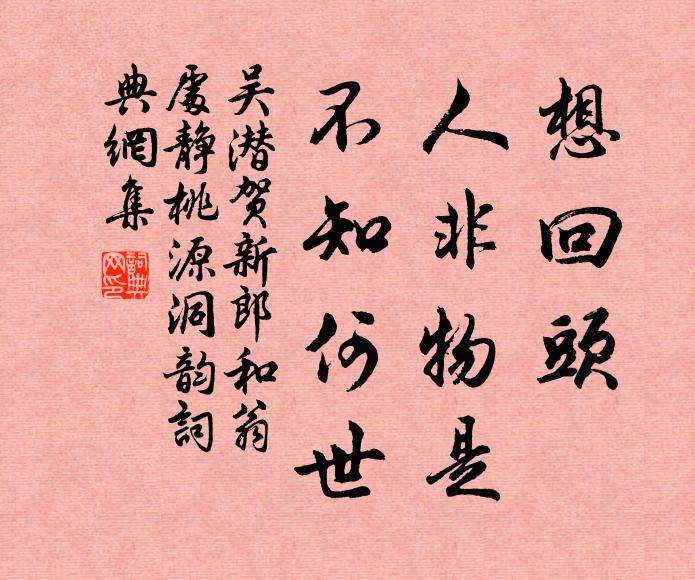 想回頭
人非物是
不知何世
吴潜贺新郎和翁
處静桃源洞韵詞
典網集
詞典网印